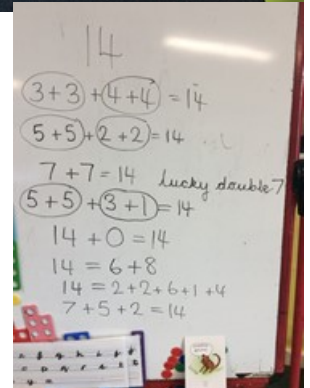 14
3+3 + 4+4 = 14
5+5 + 2+2 = 14
7+7 = 14 lucky double 7
5+5 + 3+1 = 14
14 + 0 = 14
14 = 6+8
14 = 2+2+6+1+4
7+5+2 = 14